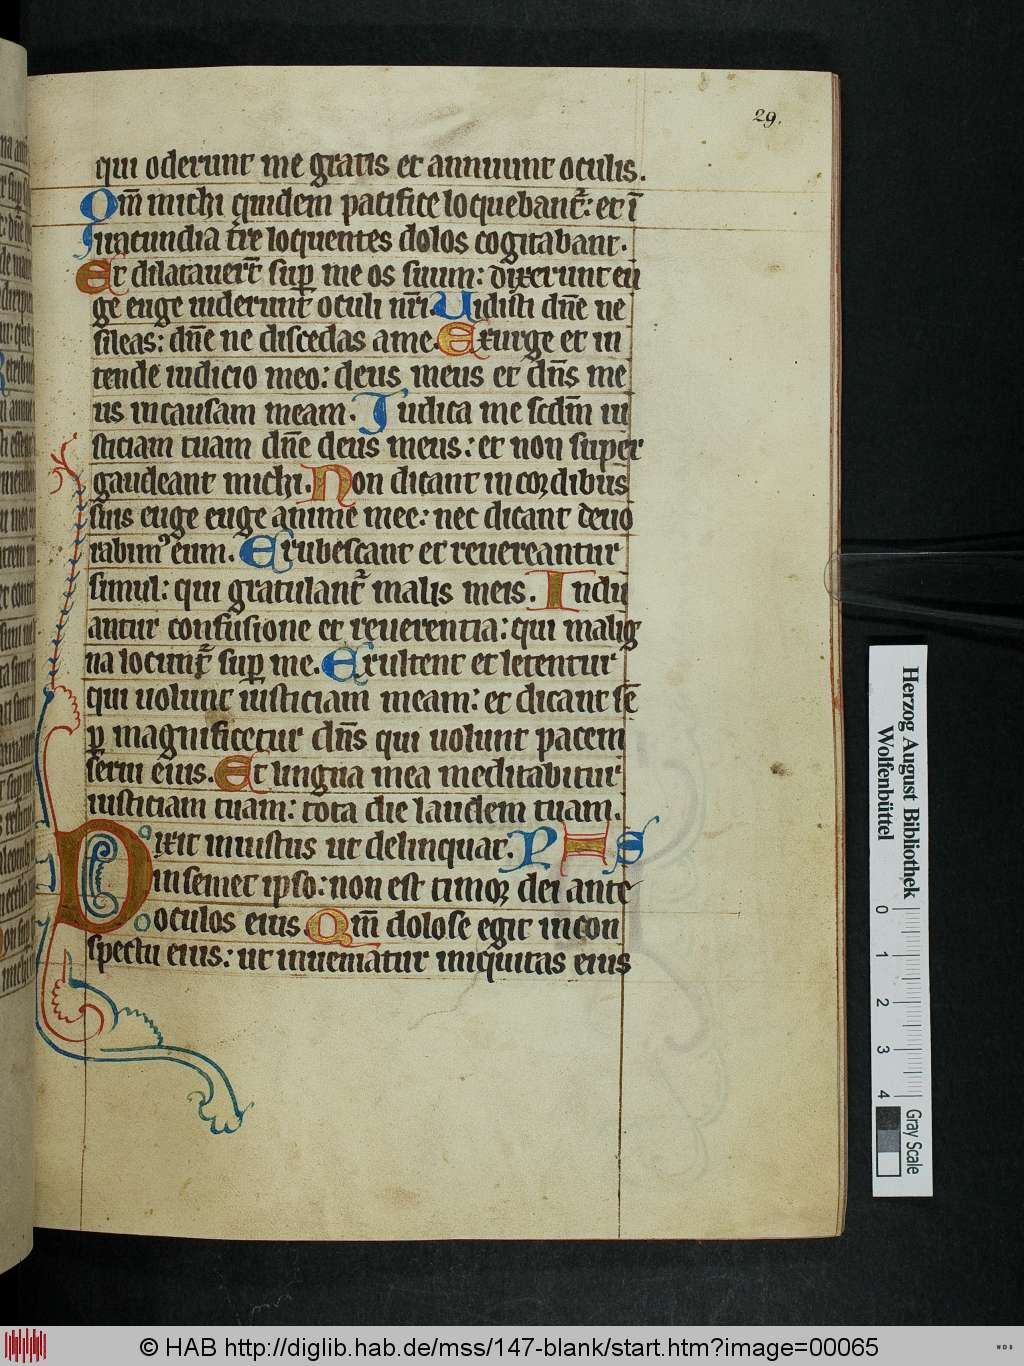 29.
qui oderunt me gratis et annuunt oculis.
Qm̄ michi quidem pacifice loquebant᷑: et ī
iracundia tr̄e loquentes dolos cogitabant.
Et dilatauer̄t suꝑ me os suum: dixerunt eu
ge euge uiderunt oculi nr̄i. Uidisti dn̄e ne
sileas: dn̄e ne discedas a me. Exurge et in
tende iudicio meo: deus meus et dn̄s me
us in causam meam. Iudica me scdm̄ iu
sticiam tuam dn̄e deus meus: et non super
gaudeant michi. Non dicant in coꝝdibus
suis euge euge anime mee: nec dicant deuo
rabimꝰ eum. Erubescant et reuereantur
simul: qui gratulant᷑ malis meis. Indu
antur confusione et reuerentia: qui malig
na locunt᷑ suꝑ me. Exultent et letentur
qui uolunt iusticiam meam: et dicant sē
ꝑ magnificetur dn̄s qui uolunt pacem
serui eius. Et lingua mea meditabitur
iusticiam tuam: tota die laudem tuam.
Dixit iniustus ut delinquat. PHS
in semet ipso: non est timoꝝ dei ante
oculos eius. Qm̄ dolose egit in con
spectu eius: ut inueniatur iniquitas eius
Herzog August Bibliothek
Wolfenbüttel
0 1 2 3 4
Gray Scale
© HAB http://diglib.hab.de/mss/147-blank/start.htm?image=00065